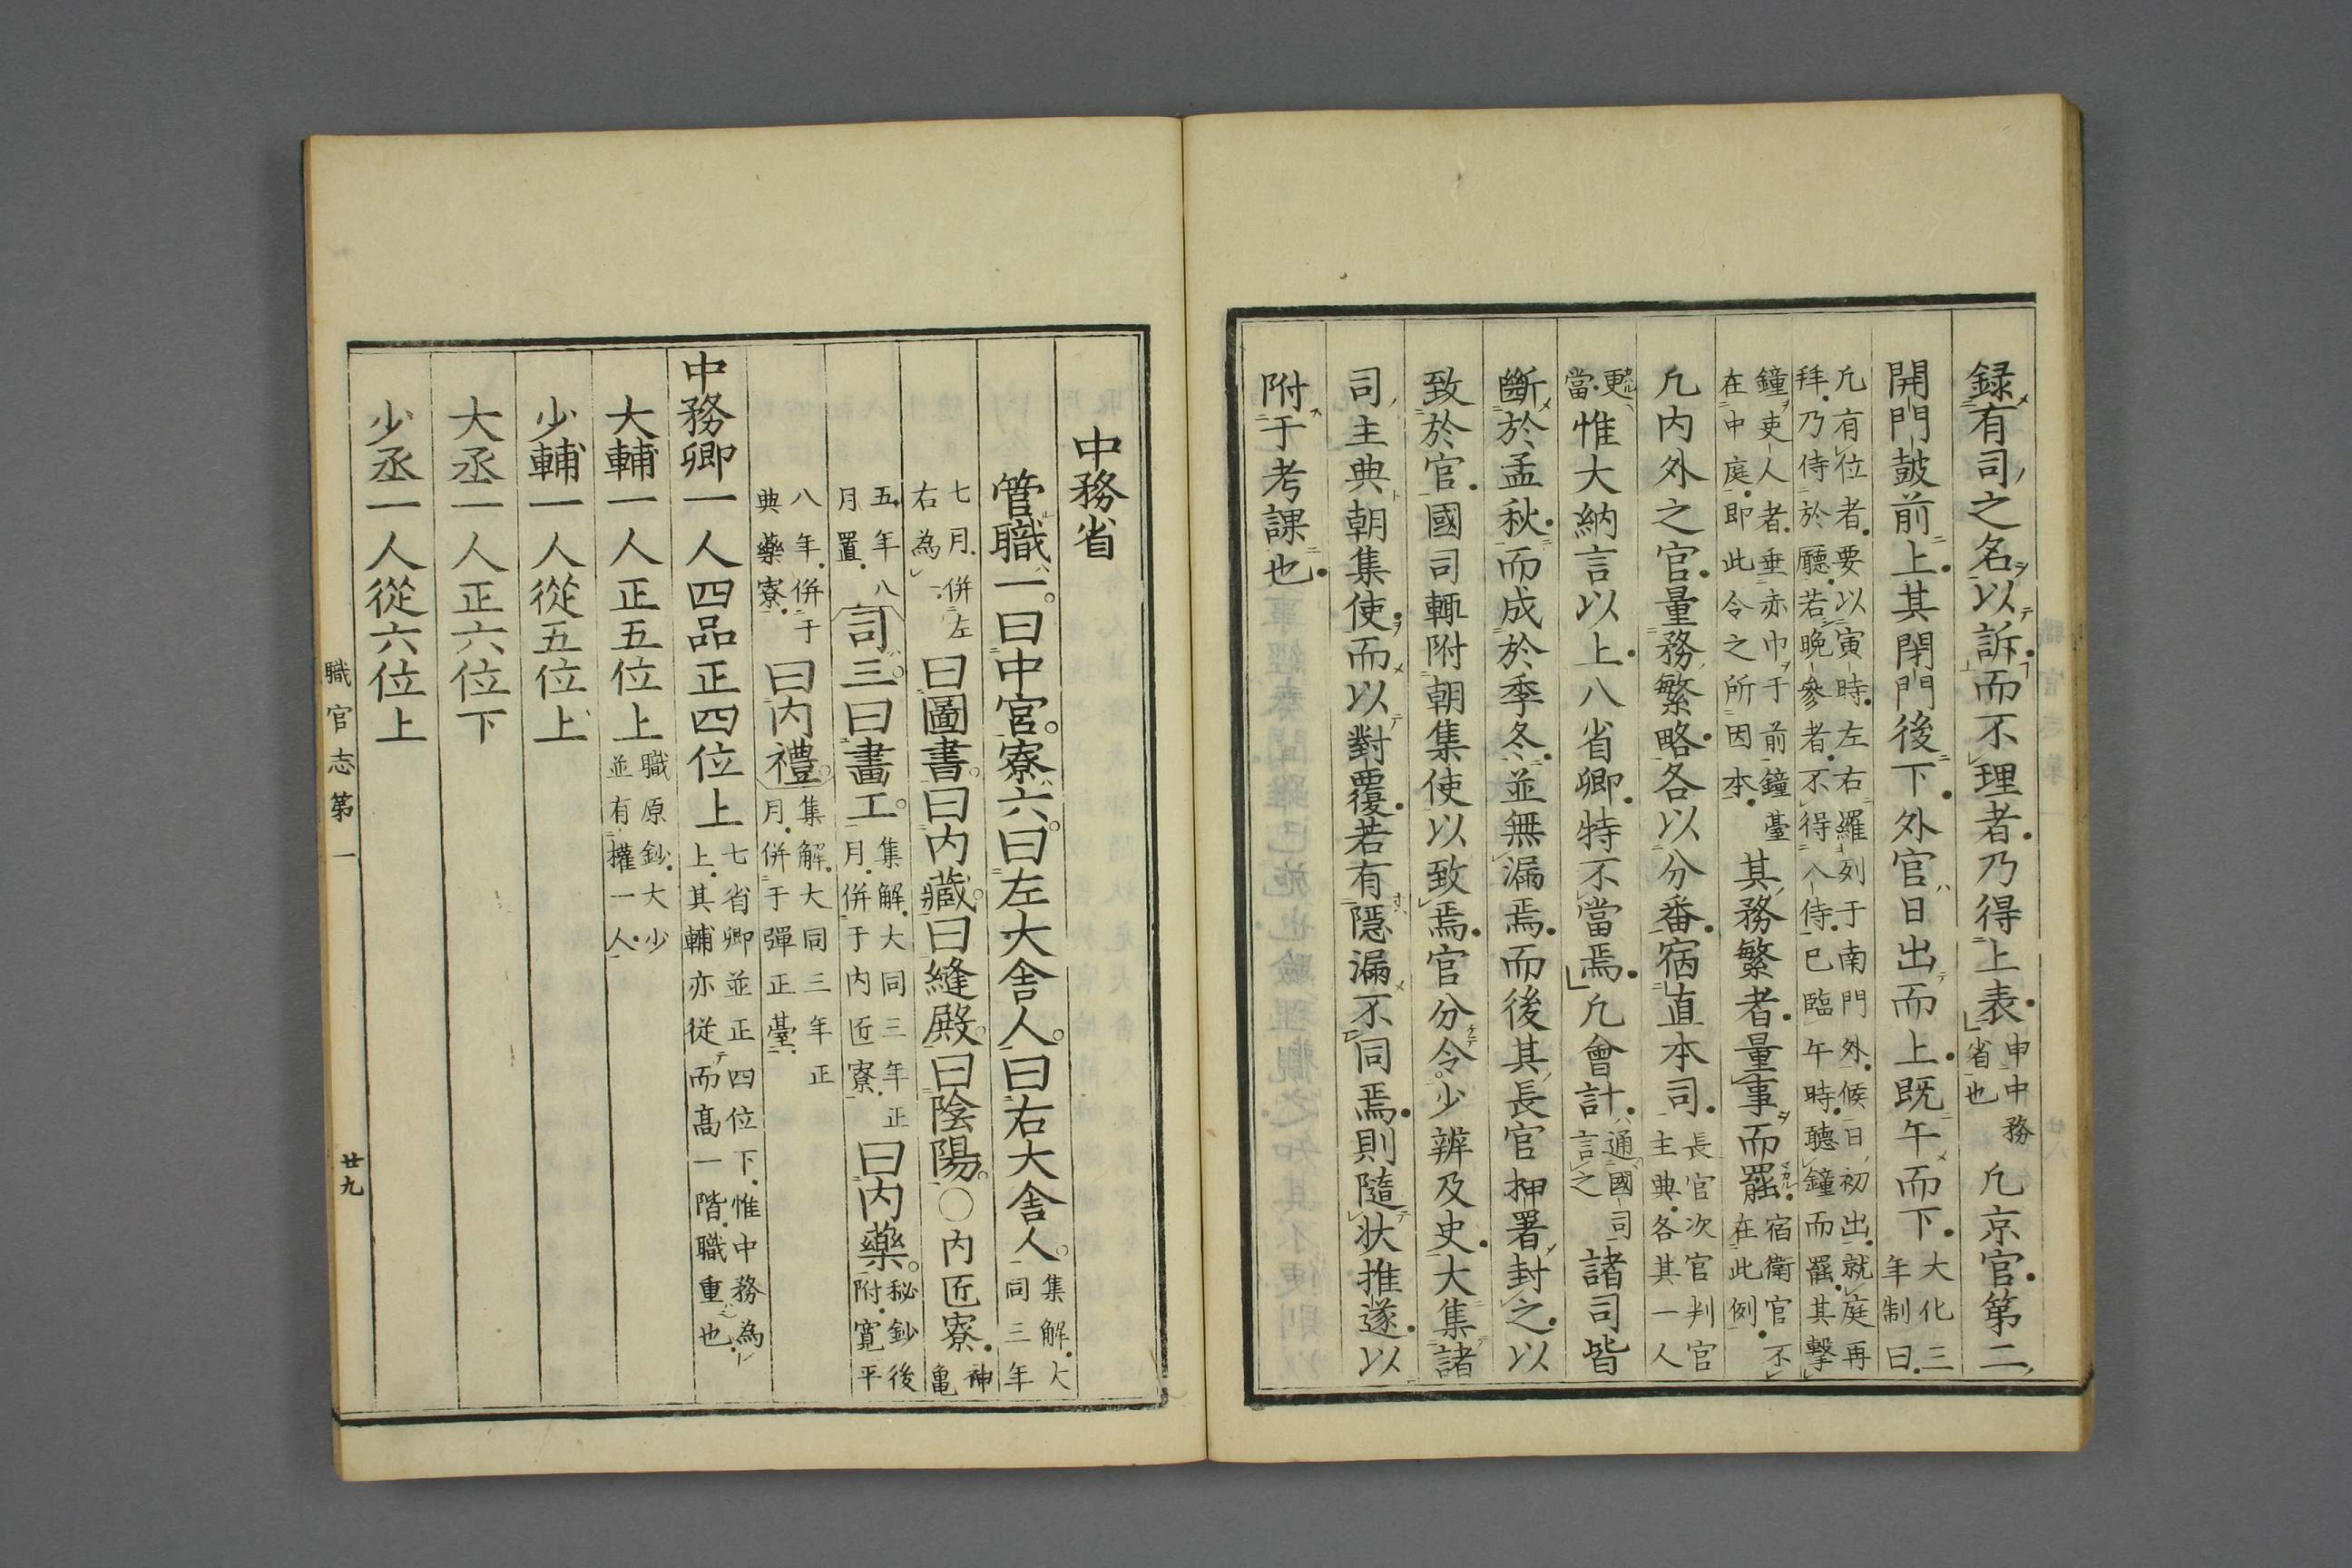 録有司之名以訴而不理者乃得上表申中務省也凡京官第二
開門皷前上其閉門後下外官日出而上既午而下大化三年制曰
凡有位者要以寅時左右羅列于南門外候日初出就庭再
拜乃侍於廳若晚參者不得入侍已臨午時聽鐘而罷其擊
鐘吏人者垂赤巾于前鐘臺
在中庭即此令之所因本其務繁者量事而罷宿衛官不在此例
凡內外之官量務繁略各以分番宿直本司長官次官判官主典各其一人
更當惟大納言以上八省卿特不當焉凡會計通國司言之諸司皆
斷於孟秋而成於季冬並無漏焉而後其長官押署封之以
致於官國司輙附朝集使以致焉官分令少辨及史大集諸
司主典朝集使而以對覆若有隱漏不同焉則隨状推遂以
附于考課也
中務省
管職一曰中宮寮六曰左大舎人曰右大舎人集解大同三年
七月併左右為一曰圖書曰内藏曰縫殿曰陰陽〇内匠寮神亀
五年八月置司三曰畫工集解大同三年正月併于内匠寮曰内藥秘鈔後附寛平
八年併于典藥寮曰内禮集解大同三年正月併于彈正臺
中務卿一人四品正四位上七省卿並正四位下惟中務為上其輔亦従而高一階職重也
大輔一人正五位上職原鈔大少並有權一人
少輔一人從五位上
大丞一人正六位下
少丞一人從六位上
職官志第一
廿九